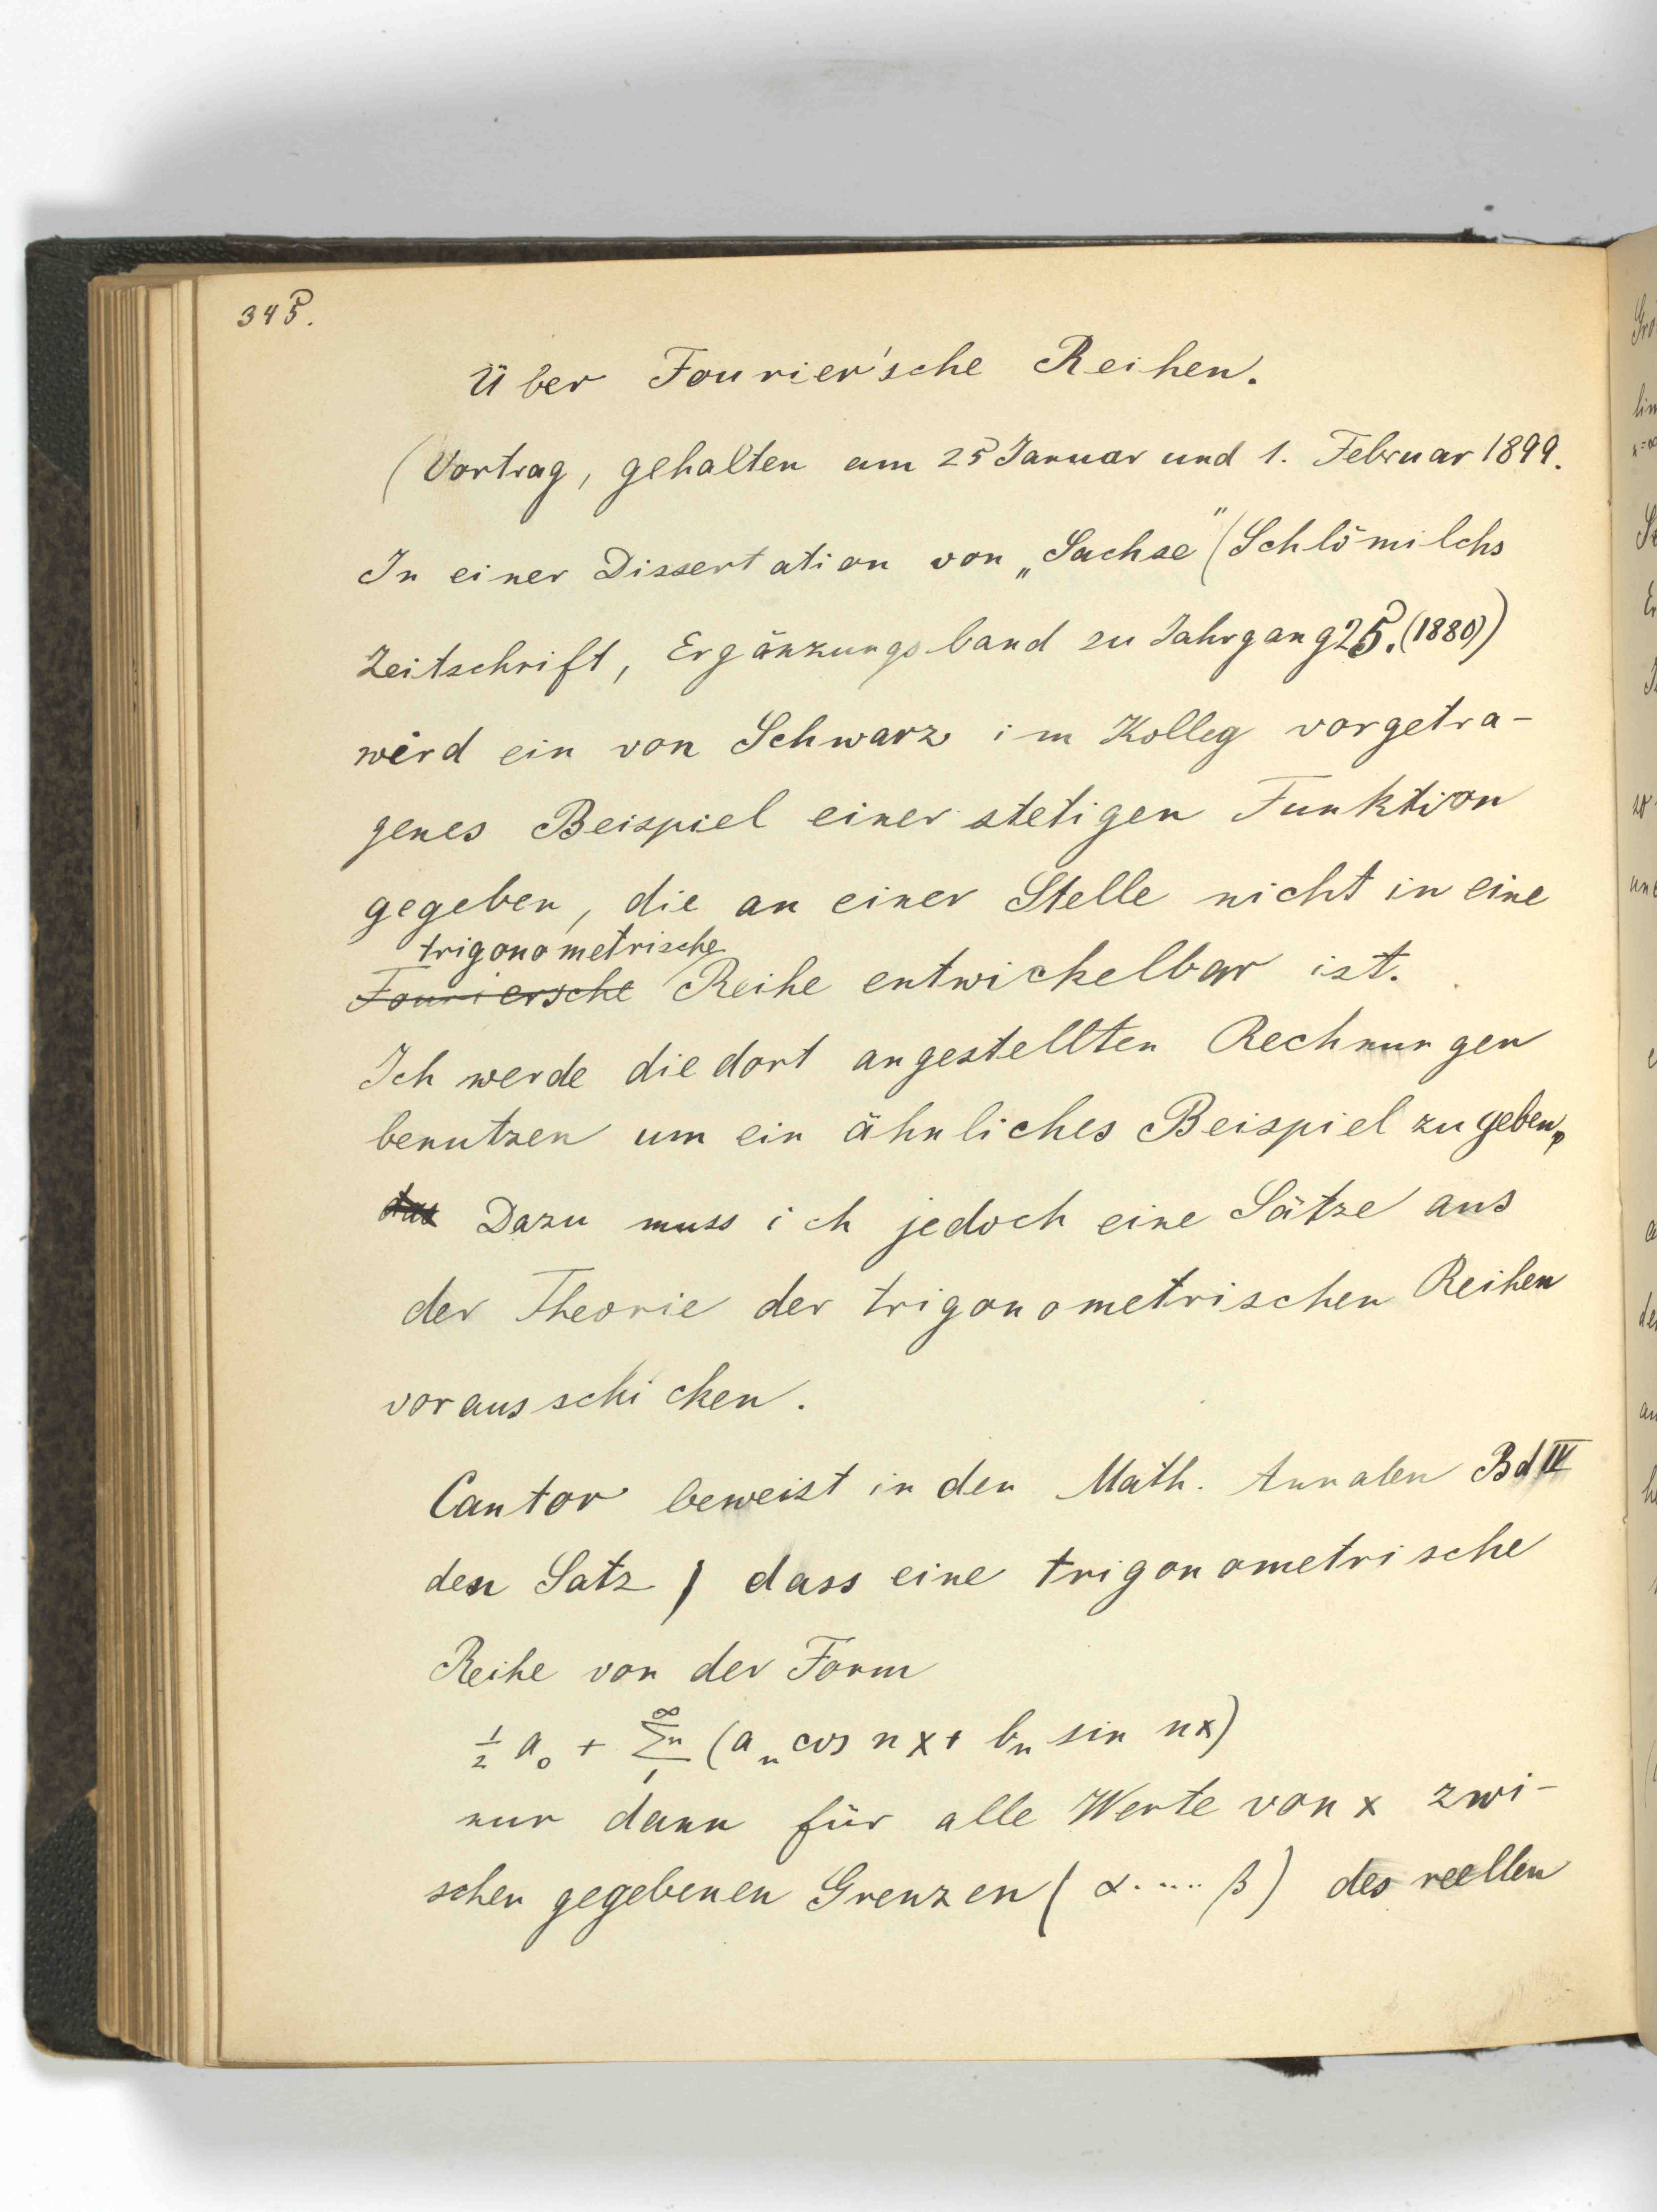 345.
Über Fourier'sche Reihen.
(Vortrag, gehalten am 25 Januar und 1. Februar 1899.
In einer Dissertation von „Sachse" (Schlömilchs
Zeitschrift, Ergänzungsband zu Jahrgang 25. (1880))
wird ein von Schwarz im Kolleg vorgetra-
genes Beispiel einer stetigen Funktion
gegeben, die an einer Stelle nicht in eine
trigonometrische
Fouriersche Reihe entwickelbar ist.
Ich werde die dort angestellten Rechnungen
benutzen um ein ähnliches Beispiel zu geben,
das Dazu muss ich jedoch eine Sätze aus
der Theorie der trigonometrischen Reihen
vorausschicken.
Cantor beweist in den Math. Annalen Bd IV
den Satz, dass eine trigonometrische
Reihe von der Form
½ a₀ + ∑ₙ₌₁^∞ (aₙ cos nx + bₙ sin nx)
nur dann für alle Werte von x zwi-
schen gegebenen Grenzen (α..... β) des reellen